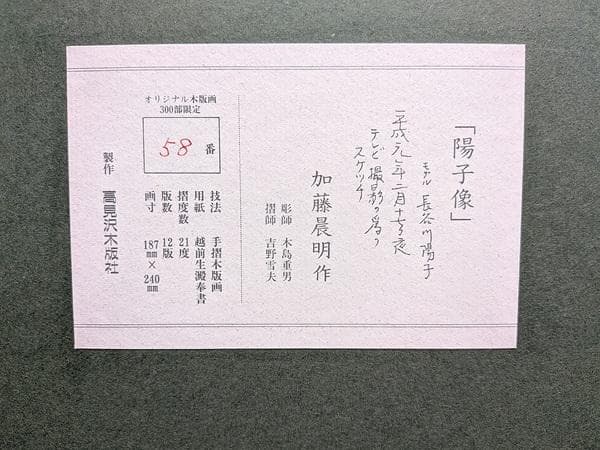 「陽子像」
モデル 長谷川陽子
平成元年二月十七夜
テレビ撮影の為の
スケッチ
加藤晨明作
彫師 木島重男
摺師 吉野雪夫
オリジナル木版画
300部限定
58番
技法 手摺木版画
用紙 越前生漉奉書
摺度数 21度
版数 12版
画寸 187mm×240mm
製作 高見沢木版社